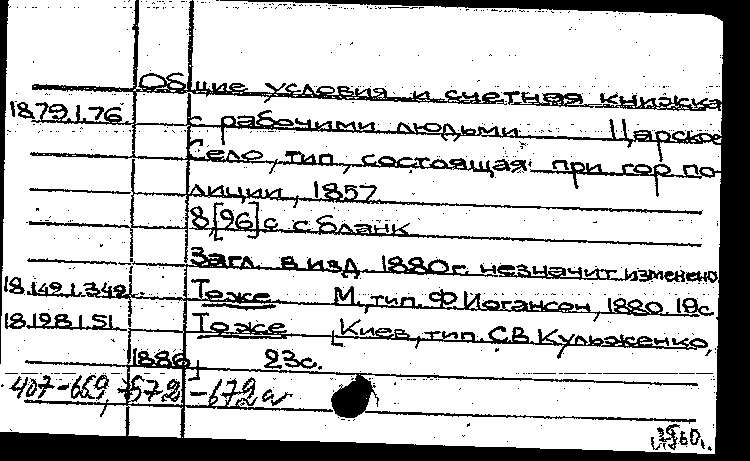 Общие условия и счетная книжка
18.79.1.76. с рабочими людьми Царское
Село, тип., состоящая при гор. по-
лиции, 1857
8,[96] с. с бланк
Загл. в изд. 1880 г. незначит. изменено.
18.149.1.349. То же М., тип. Ф. Иогансон, 1880. 19 с.
18.198.1.51. То же [Киев, тип. С.В. Кульженко,
1886] 23 с.
407-669, 672-672а